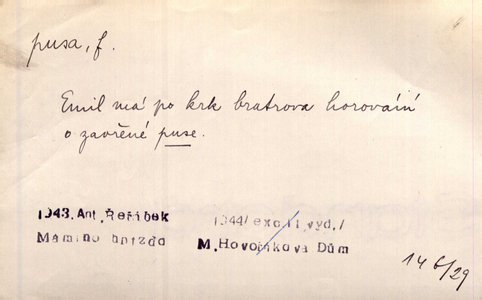 pusa, f.
Emil má po krk bratrova horování
o zavřené puse.
1943. Ant. Řeřibek
Mamino hnízdo
1944/ exc. /I. vyd./
M. Hovorkova Dům
14 6/29